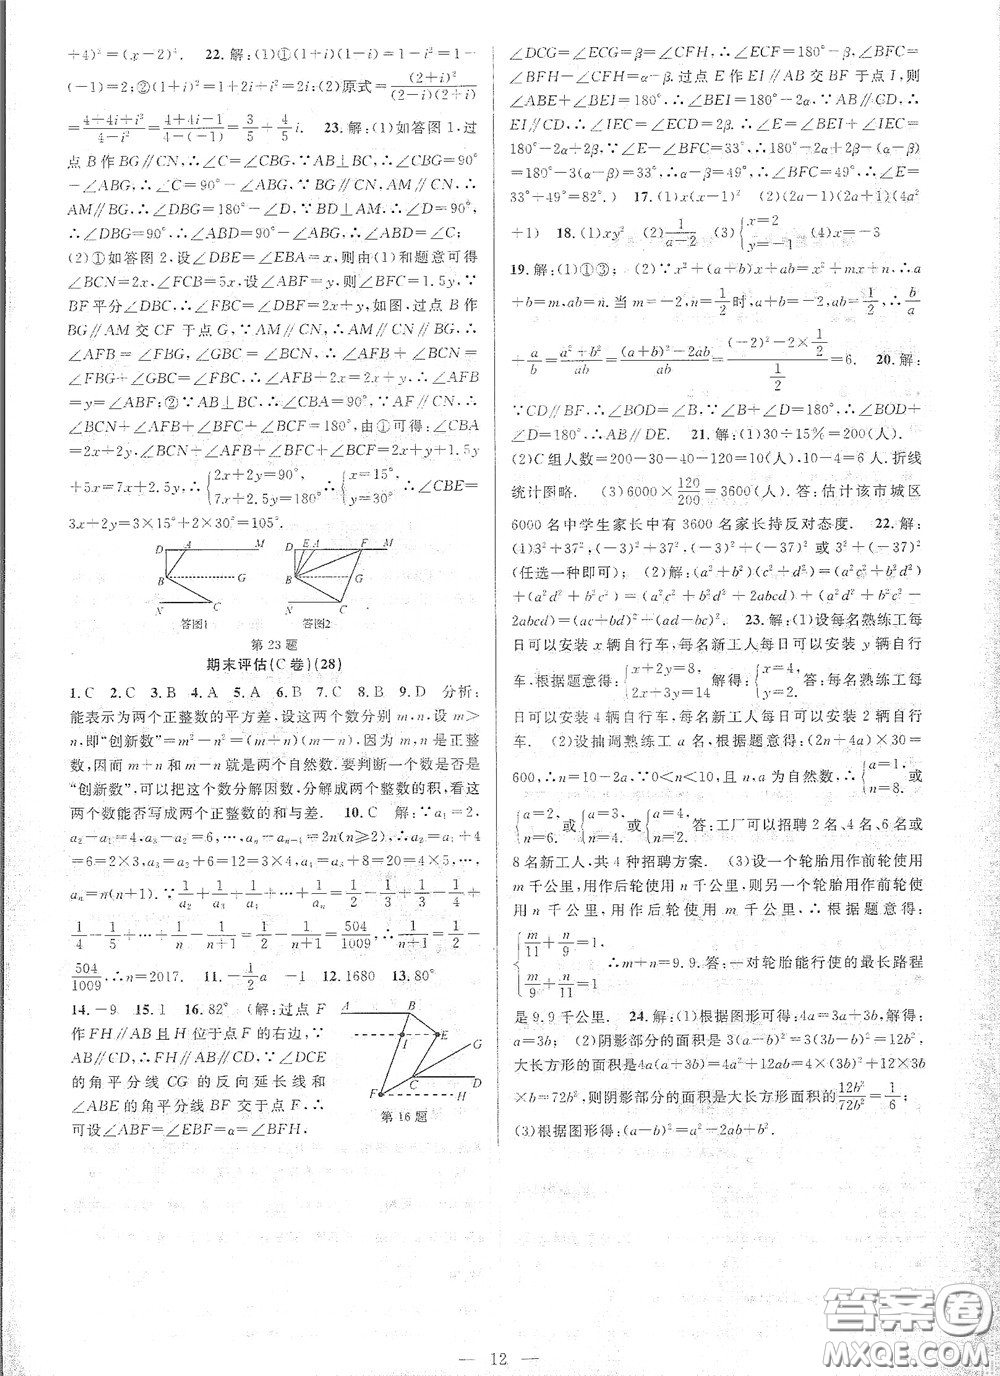 +4)²=(x-2)⁴.　22.解:(1)①(1+i)(1-i)=1-i²=1-
(-1)=2;②(1+i)²=1+2i+i²=2i;(2)原式=(2+i)²/(2-i)(2+i)
=(4+4i+i²)/(4-i²)=(4+4i-1)/(4-(-1))=3/5+4/5 i.　23.解:(1)如答图1,过
点B作BG∥CN,∴∠C=∠CBG.∵AB⊥BC,∴∠CBG=90°
-∠ABG,∴∠C=90°-∠ABG.∵BG∥CN,AM∥CN,∴
AM∥BG,∴∠DBG=180°-∠D.∵BD⊥AM,∴∠D=90°,
∴∠DBG=90°,∴∠ABD=90°-∠ABG,∴∠ABD=∠C;
(2)①如答图2,设∠DBE=∠EBA=x,则由(1)和题意可得
∠BCN=2x,∠FCB=5x,设∠ABF=y,则∠BFC=1.5y,∵
BF平分∠DBC,∴∠FBC=∠DBF=2x+y,如图,过点B作
BG∥AM交CF于点G,∵AM∥CN,∴AM∥CN∥BG,∴
∠AFB=∠FBG,∠GBC=∠BCN,∴∠AFB+∠BCN=
∠FBG+∠GBC=∠FBC,∴∠AFB+2x=2x+y,∴∠AFB
=y=∠ABF;②∵AB⊥BC,∴∠CBA=90°.∵AF∥CN,∴
∠BCN+∠AFB+∠BFC+∠BCF=180°,由①可得:∠CBA
=2x+2y,∠BCN+∠AFB+∠BFC+∠BCF=2x+y+1.5y
+5x=7x+2.5y,∴{2x+2y=90°, 7x+2.5y=180°∴{x=15°, y=30°∴∠CBE=
3x+2y=3×15°+2×30°=105°.
D A M D E A F M
B G B G
N C N C
答图1　答图2
第23题
期末评估(C卷)(28)
1.C　2.C　3.B　4.A　5.A　6.B　7.C　8.B　9.D　分析:
能表示为两个正整数的平方差,设这两个数分别m,n,设m>
n,即“创新数”=m²-n²=(m+n)(m-n),因为m,n是正整
数,因而m+n和m-n就是两个自然数.要判断一个数是否是
“创新数”,可以把这个数分解因数,分解成两个整数的积,看这
两个数能否写成两个正整数的和与差.　10.C　解:∵a₁=2,
a₂-a₁=4,a₃-a₂=6,…,aₙ-aₙ₋₁=2n(n≥2),∴a₂=a₁+4
=6=2×3,a₃=a₂+6=12=3×4,a₄=a₃+8=20=4×5,…,
aₙ=n(n+1).∵1/a₂+1/a₃+1/a₄+…+1/aₙ=1/2-1/3+1/3-1/4+
1/4-1/5+…+1/n-1/(n+1)=1/2-1/(n+1)=504/1009,∴1/(n+1)=1/2-
504/1009,∴n=2017.　11.-1/2 a　-1　12.1680　13.80°
14.-9　15.1　16.82°　(解:过点F
作FH∥AB且H位于点F的右边,∵
AB∥CD,∴CD∥FH,∵∠DCE
的角平分线CG的反向延长线和
∠ABE的角平分线BF交于点F,∴
可设∠ABF=∠EBF=α=∠BFH,
A B
I E G
C D
F H
第16题
∠DCG=∠ECG=β=∠CFH,∴∠ECF=180°-β,∠BFC=
∠BFH-∠CFH=α-β,过点E作EI∥AB交BF于点I,则
∠ABE+∠BEI=180°,∴∠BEI=180°-2α,∵AB∥CD,∴
EI∥CD,∴∠IEC=∠ECD=2β,∴∠E=∠BEI+∠IEC=
180°-2α+2β.∵∠E-∠BFC=33°,∴180°-2α+2β-(α-β)=
180°-3(α-β)=33°,∴α-β=49°,∴∠BFC=49°,∴∠E=
33°+49°=82°.)　17.(1)x(x-1)²　(2)(2a-1)(2a+1)(4a²
+1)　18.(1)xy²　(2)1/(a-2)　(3){x=2 y=-1　(4)x=-3
19.解:(1)①③;　(2)∵x²+(a+b)x+ab=x²+mx+n,∴a
+b=m,ab=n.当m=-2,n=1/2时,a+b=-2,ab=1/2,∴b/a
+a/b=(a²+b²)/ab=((a+b)²-2ab)/ab=((-2)²-2×1/2)/(1/2)=6.　20.解:
∵CD∥BF,∴∠BOD=∠B,∵∠B+∠D=180°,∴∠BOD+
∠D=180°,∴AB∥DE.　21.解:(1)30÷15%=200(人).
(2)C组人数=200-30-40-120=10(人).10-4=6人.折线
统计图略.　(3)6000×120/200=3600(人).答:估计该市城区
6000名中学生家长中有3600名家长持反对态度.　22.解:
(1)3²+37²,(-3)²+37²,(-3)²+(-37)²或3²+(-37)²
(任选一种即可);　(2)解:(a²+b²)(c²+d²)=(a²c²+b²c²
+a²d²+b²d²)=(a²c²+b²d²+2abcd)+(a²d²+b²c²-
2abcd)=(ac+bd)²+(ad-bc)².　23.解:(1)设每名熟练工每
日可以安装x辆自行车,每名新工人每日可以安装y辆自行
车,根据题意得:{x+2y=8, 2x+3y=14解得:{x=4, y=2.答:每名熟练工每
日可以安装4辆自行车,每名新工人每日可以安装2辆自行
车.　(2)设抽调熟练工a名,根据题意得:(2n+4a)×30=
600,∴n=10-2a.∵0<n<10,且n,a为自然数,∴{a=1, n=8.或
{a=2, n=6.或{a=3, n=4.或{a=4, n=2.答:工厂可以招聘2名、4名、6名或
8名新工人,共4种招聘方案.　(3)设一个轮胎用作前轮使用
m千公里,用作后轮使用n千公里,则另一个轮胎用作前轮使
用n千公里,用作后轮使用m千公里,∴根据题意得:
{m/11+n/9=1. m/9+n/11=1∴m+n=9.9.答:一对轮胎能行使的最长路程
是9.9千公里.　24.解:(1)根据图形可得:4a=3a+3b,解得:
a=3b;　(2)阴影部分的面积是3(a-b)²=3(3b-b)²=12b²,
大长方形的面积是4a(a+3b)=4a²+12ab=4×(3b)²+12×3b
×b=72b²,则阴影部分的面积是大长方形面积的12b²/72b²=1/6;
(3)根据图形得:(a-b)²=a²-2ab+b².
— 12 —
答案圈
MXQE.COM